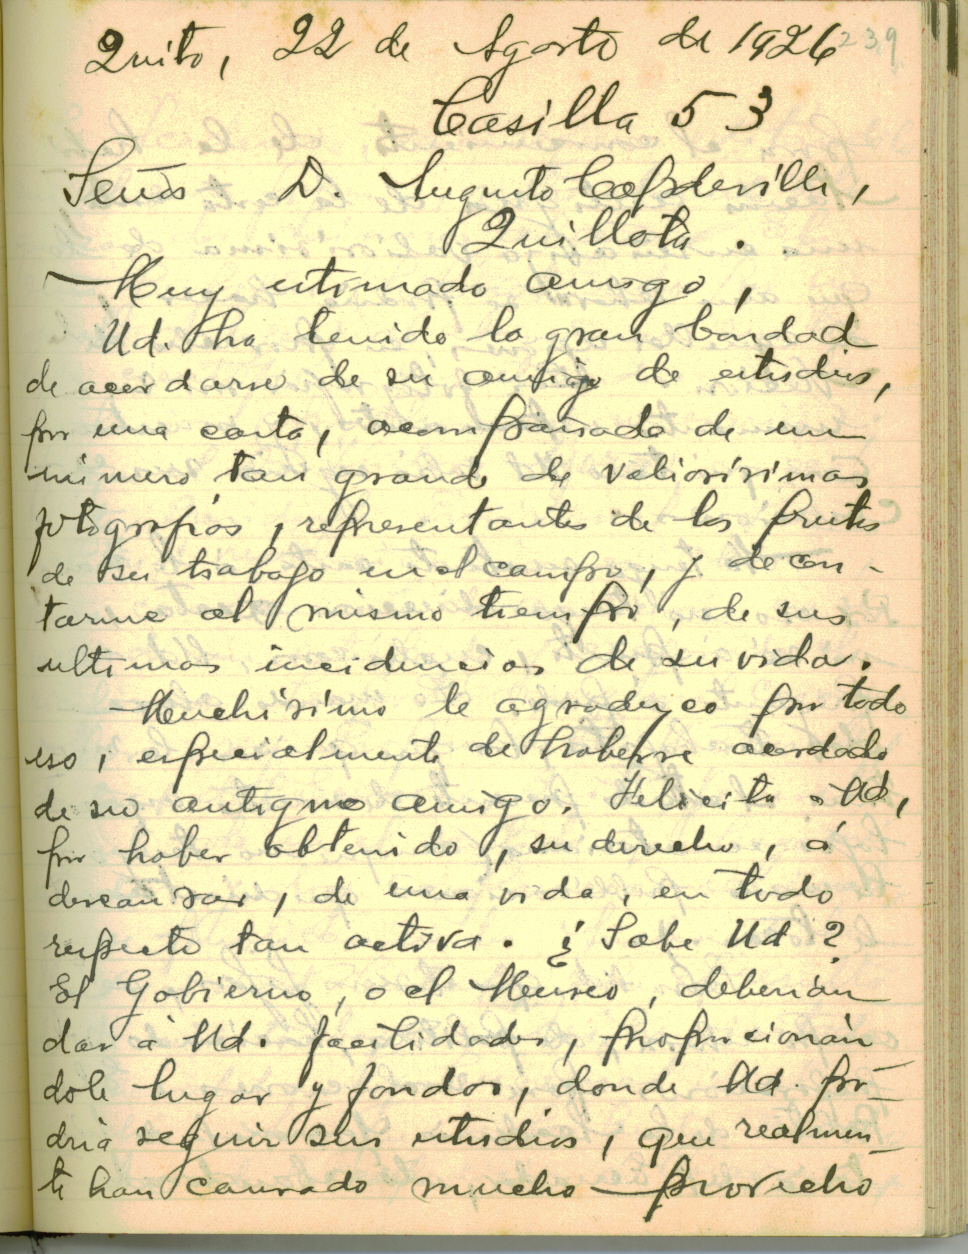 Quito, 22 de Agosto de 1926 239
Casilla 53
Señor D. Augusto Capdeville,
Quillota.
Muy estimado amigo,
Ud. ha tenido la gran bondad
de acordarse de su amigo de estudios,
por una carta, acompañada de un
número tan grande de valiosísimas
fotografías, representantes de los frutos
de su trabajo en el campo, y de con-
tarme al mismo tiempo, de sus
ultimas incidencias de su vida.
Muchísimo le agradezco por todo
eso, especialmente de haberse acordado
de su antiguo amigo. Felicito a Ud,
por haber obtenido, su derecho, á
descansar, de una vida, en todo
respecto tan activa. ¿Sabe Ud?
El Gobierno, o el Museo, deberían
dar á Ud. facilidades, proporcionán
dole lugar y fondos, donde Ud. po-
dría seguir sus estudios, que realmen-
te han causado mucho provecho